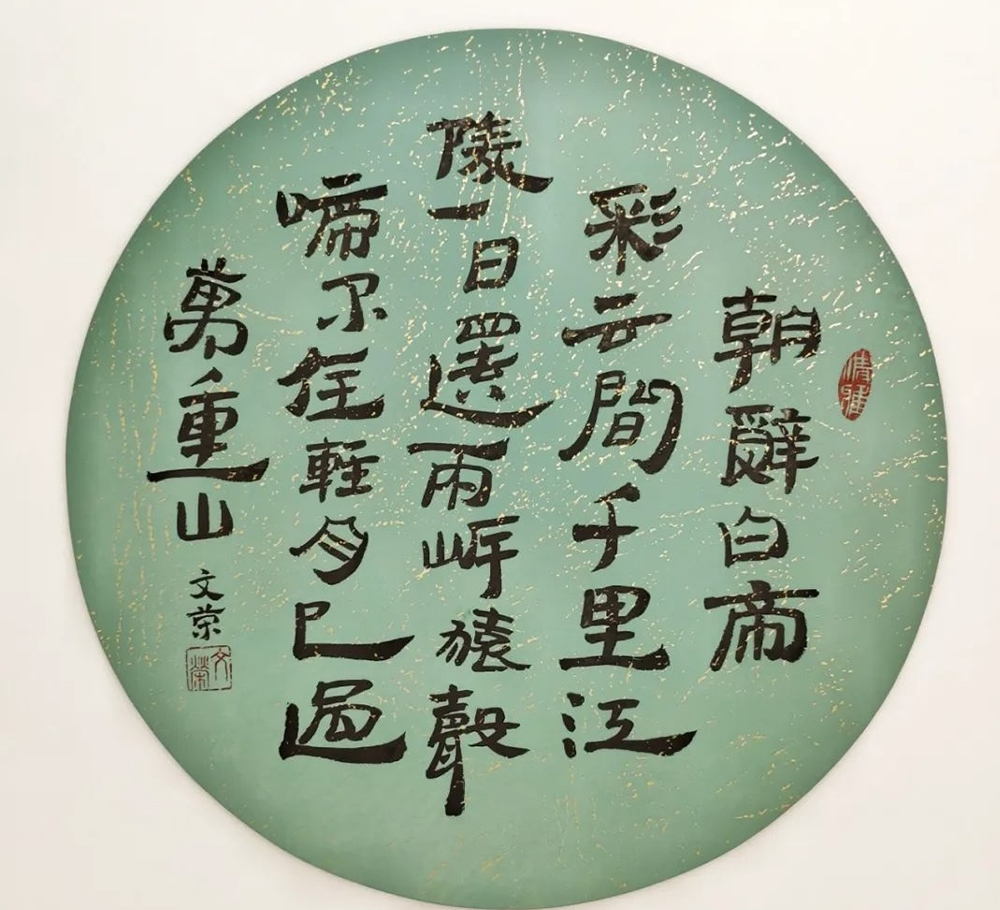 朝辭白帝
彩云間千里江
陵一日還兩岸猿聲
啼不住輕舟已過
萬重山
文荣
文榮